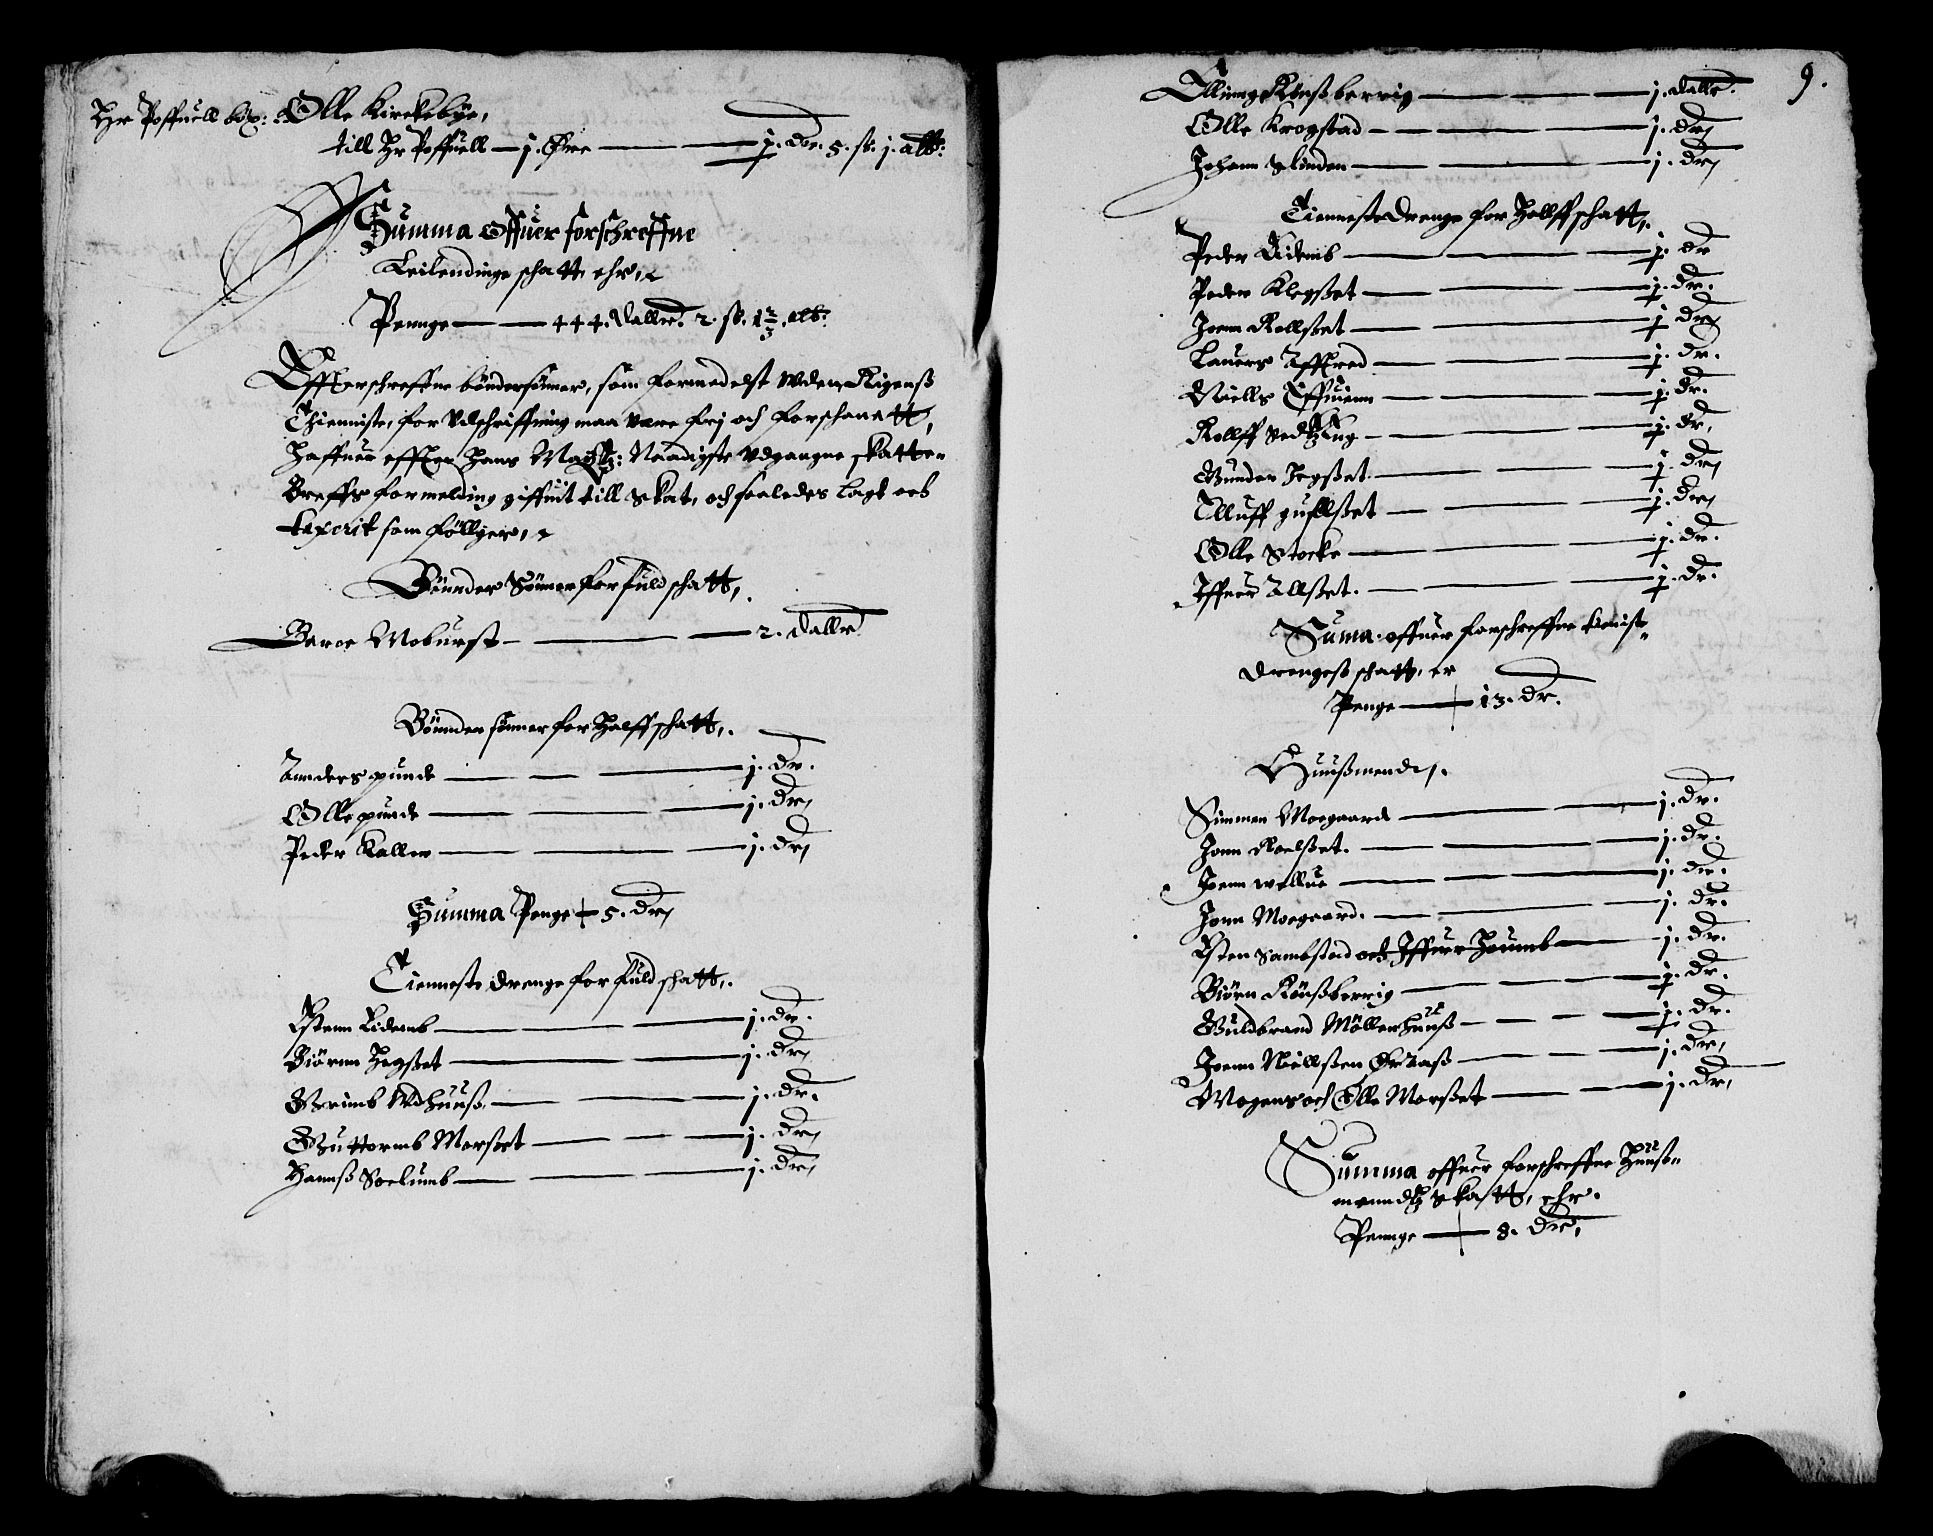 Hr Poffuell böx: Olle Kirckebye,
till Hr Poffuell — j. Øre — j. dr. 5. sk. j. alb:
Summa offuer forschreffne
Leilendinge schatt, ehr,
Pennge — 444. Dallr. 2. sk. 1 2/3. alb:
Effterschreffne bönder sönner, som formedelst wden Rigenß
Thienniste, for Vdschriffning maa være frj och forschaanett,
Haffuer effter Hans Maÿtz: Naadigste Vdgangne skatte
Breffs formelding giffuit till Skat, och saaledes lagt och
taxerit som föllger,
Bönnder Sönner for fuld schatt,
Baroe Moburst — 2. Dallr
Bönnder sönner for Halff schatt,.
Annders punde — j. dr.
Olle punde — j. dr
Peder Kaller — j. dr
Summa Penge — 5. dr
Tienneste drenge for fuld schatt,.
Estenn Lidemb — j. dr.
Biörnn Hegßet — j. dr
Grimb Widhuuß — j. dr.
Guttormb Morsset — j. dr
Hannß Soelumb — j. dr
9.
Elling Rönßberrig — j. Dallr.
Olle Krogstad — j. dr
Johann Slinden — j. dr
Tienneste Drenge for Hallff schatt,.
Peder Lidemb — j. dr
Peder Klegßet — j. dr.
Joenn Rollßet — j. dr
Lauers Afflred — j. dr.
Niells Effuienn — j. dr.
Rollff Vedtzing — j. dr.
Gunder Hegßet — j. dr
Elluff gullßet — j. dr
Olle Stocke — j. dr.
Iffuer Allßet. — j. dr.
Suma. offuer forschreffne tienist
drengeß schatt, er
Penge — 13. dr.
Huußmend,.
Simmen Moegaard — j. dr.
Jonn Roelßet. — j. dr.
Joenn wollue — j. dr.
Jonn Moegaard. — j. dr.
Esten Sambstad och Iffuer Houmb — j. dr.
Biörn Rönßberrig — j. dr.
Guldbrand Möllerhuuß — j. dr.
Joenn Niellßen Øraaß — j. dr,
Mogens och Olle Morßet — j. dr,
Summa offuer forschreffne Huuß
manndtz Skatt, ehr.
Pennge — 8. dr,